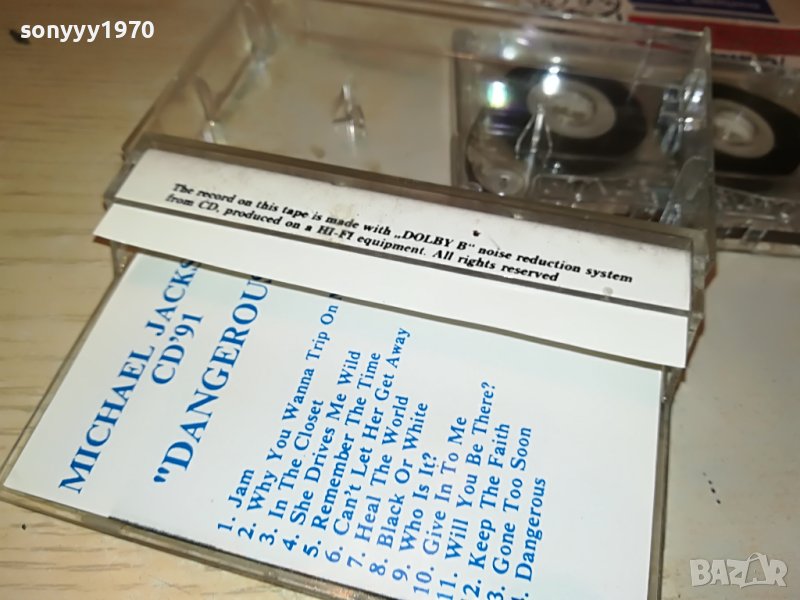 sonyyy1970
The record on this tape is made with „DOLBY B" noise reduction system
from CD, produced on a HI-FI equipment. All rights reserved
MICHAEL JACKS
CD'91
"DANGEROUS
1. Jam
2. Why You Wanna Trip On
3. In The Closet
4. She Drives Me Wild
5. Remember The Time
6. Can't Let Her Get Away
7. Heal The World
8. Black Or White
9. Who Is It?
10. Give In To Me
11. Will You Be There?
12. Keep The Faith
3. Gone Too Soon
4. Dangerous
BAZAR